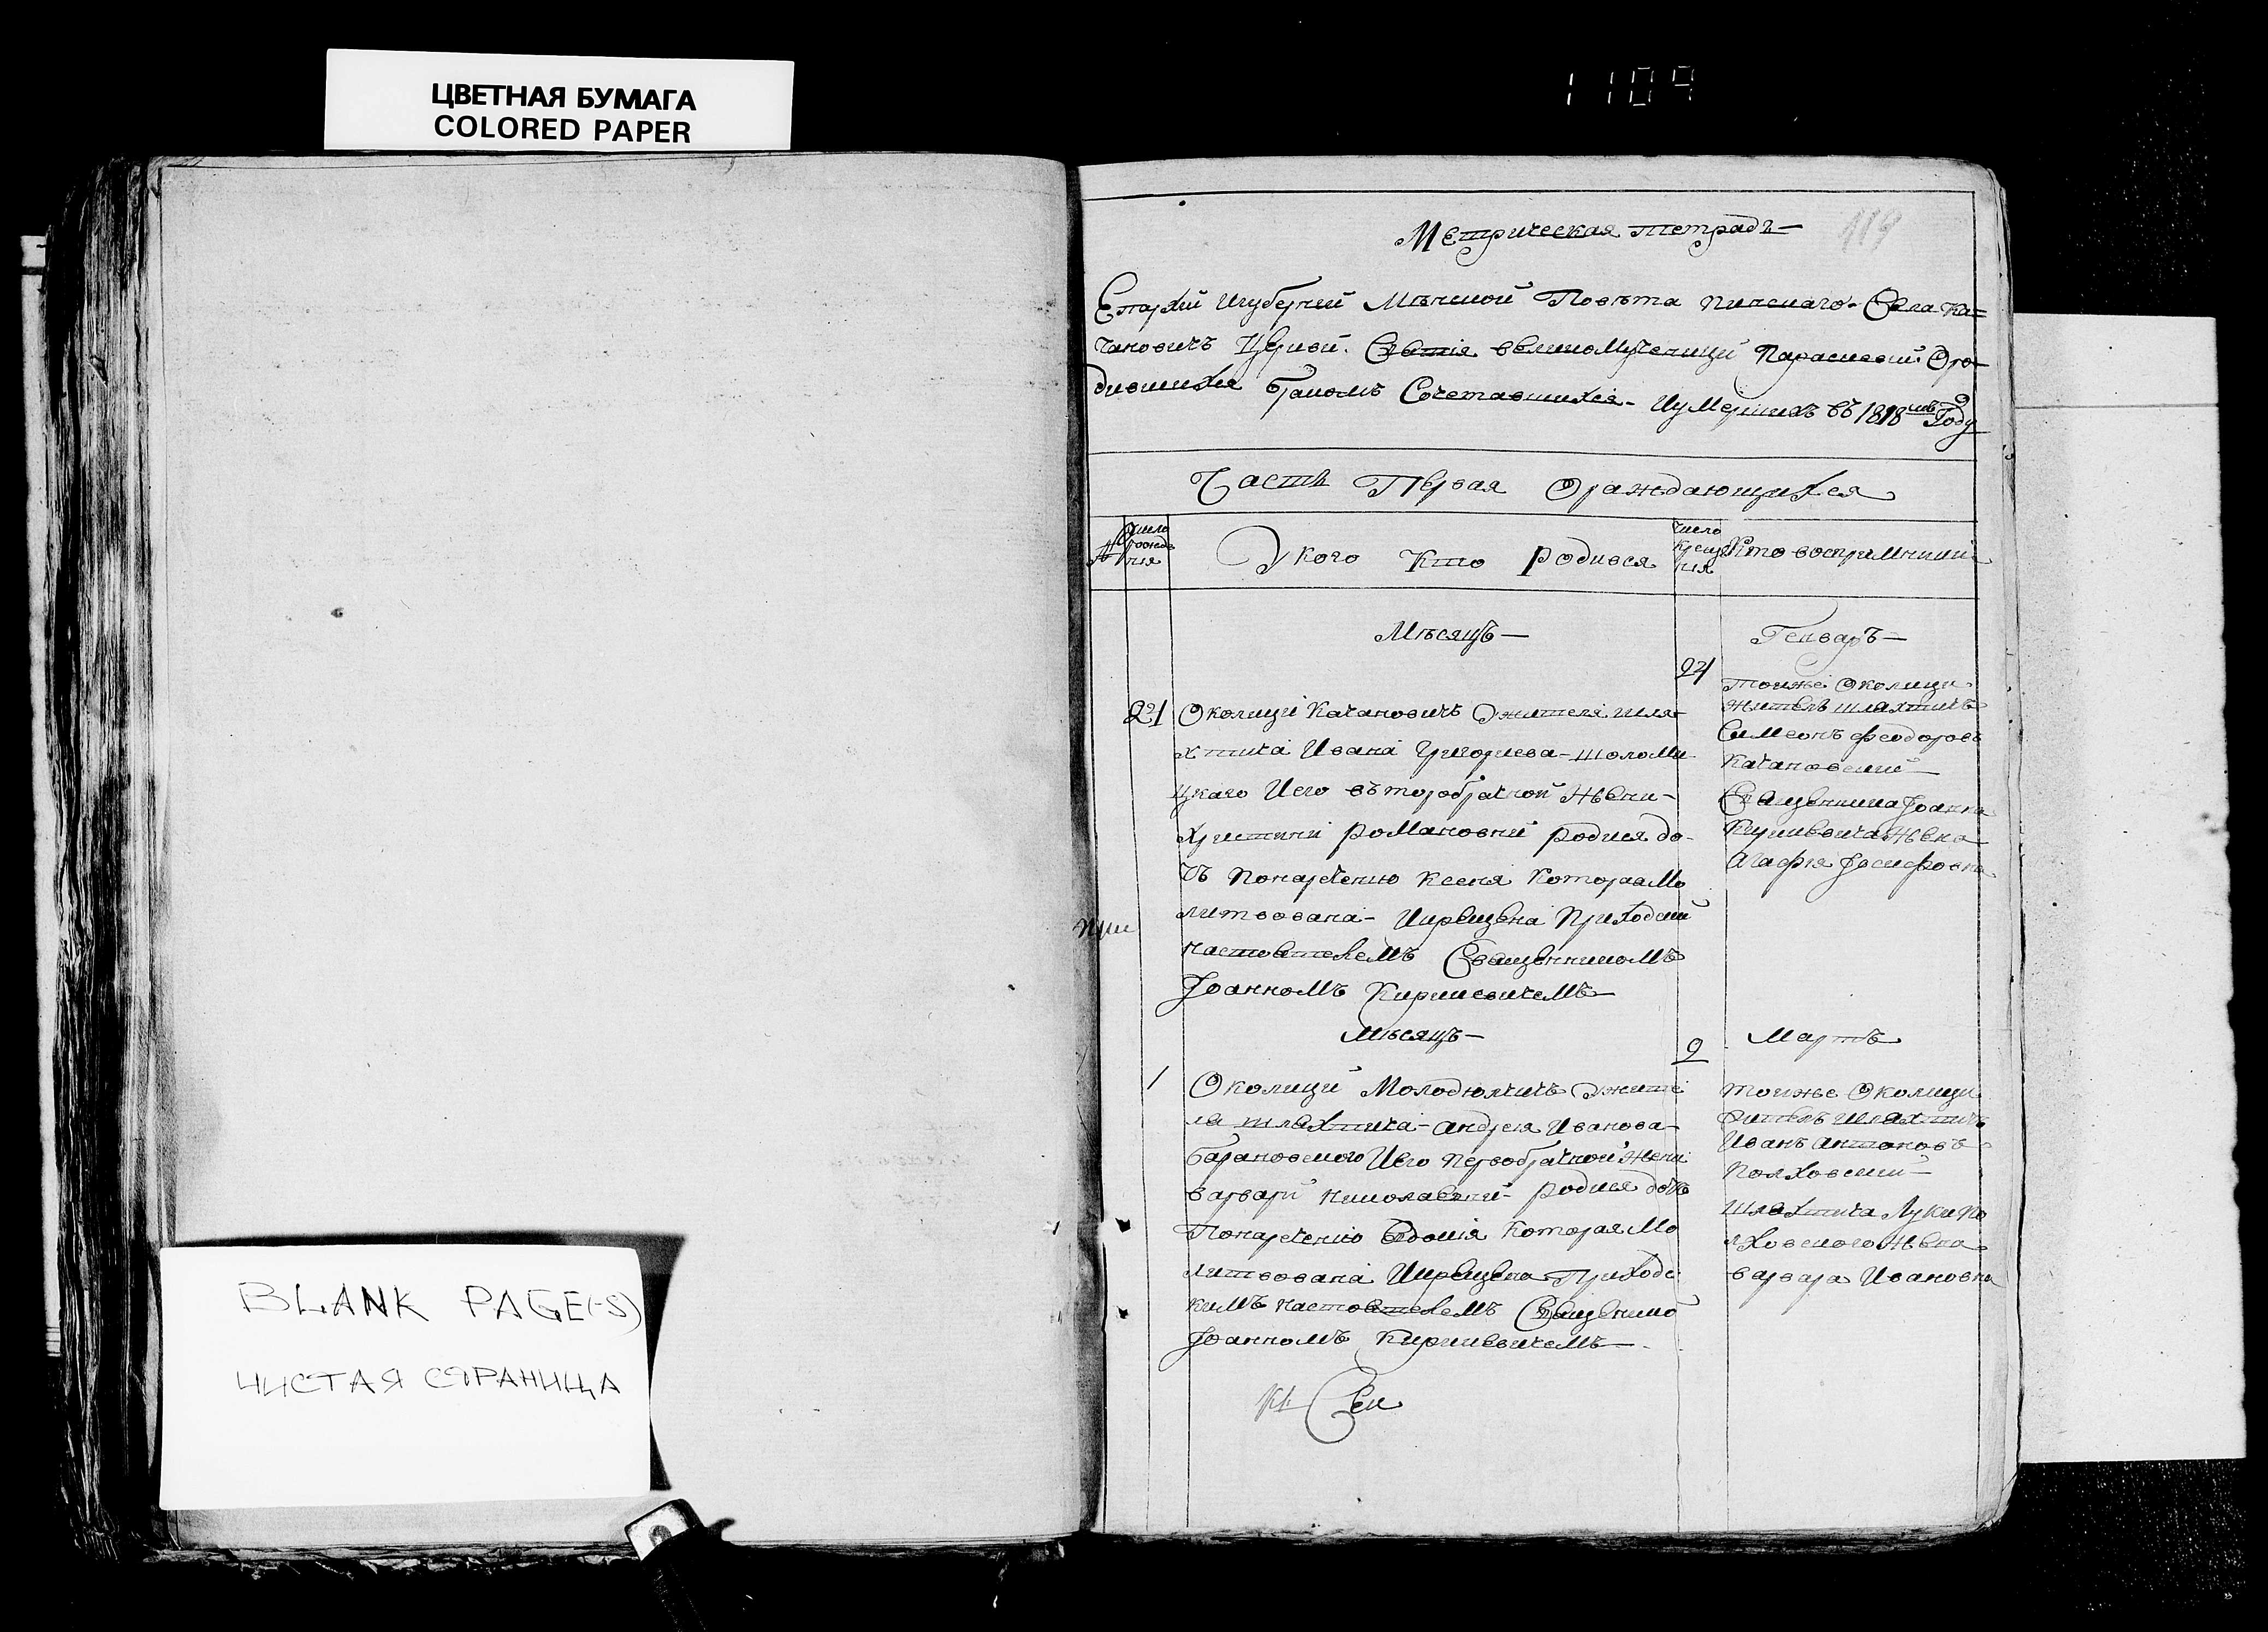 ЦВЕТНАЯ БУМАГА
COLORED PAPER
1109
BLANK PAGE(-S)
ЧИСТАЯ СТРАНИЦА
119
Метрическая тетрадь
Епархій Игуберній Мѣнской Повѣта Пинскаго Села Ка=
чановичъ Церкви Святія великомученици Параскевіи Оро-
дившихся бракомъ Сочетавшихся Иумершихъ въ 1818мъ Году
Часть Первая Ораждающихся
№
Число рожде нія
У кого Кто родився
число креще нія
Кто воспримники
Мѣсяцъ
Генваръ
21
Околици Качановичъ Ужителя шля
хтича Ивана Григориева Шоломи
цкаго Иего въторобрачной жени
Христини Романовни родися до
чъ Понаречению Ксеня Которая Мо
литвована Икрещена Приходски
При
настоятелемъ Священникомъ
Іоанномъ Киркевичемъ
24
тоижъ Околици
житель шляхтичъ
Симеонъ Феодоровъ
Качановский
Священника Іоанна
Киркевича Жена
Агафія Іосифовна
Мѣсяцъ
Мартъ
1
Околици Молодюличъ Ужите
ля шляхтича Андрея Иванова
Барановского Иего Первобрачной Жени
Варвари Николаевни родися дочъ
Понаречению Евдокія Которая Мо
литвована Икрещена Приходс
кимъ настоятелемъ Священико
Іоанномъ Киркевичемъ
9
тоижъ Околици
житель шляхтичъ
Иванъ Антоновъ
Полховский
шляхтича Луки По
лховского Жена
Варвара Ивановна